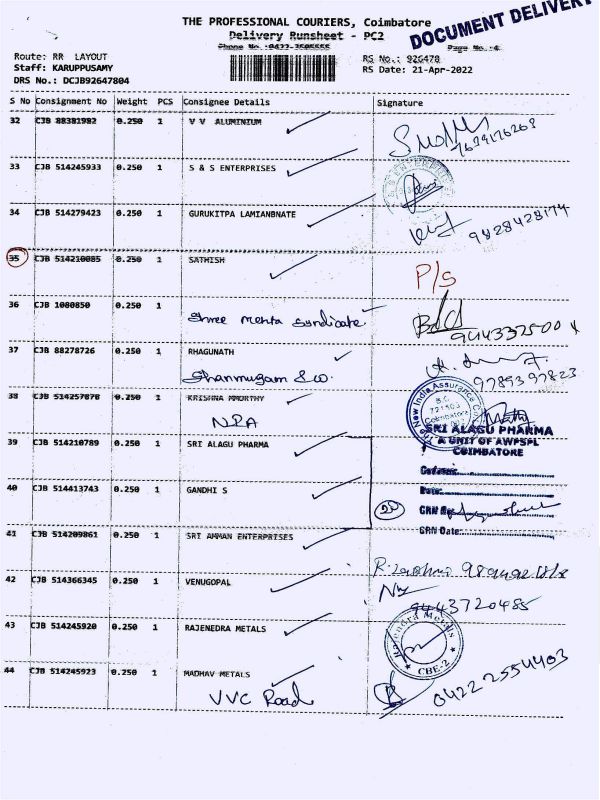 THE PROFESSIONAL COURIERS, Coimbatore
DOCUMENT DELIVERY
Delivery Runsheet - PC2
Phone No.:0422-3505555
Page No.:4
Route: RR LAYOUT
RS No.: 926478
Staff: KARUPPUSAMY
RS Date: 21-Apr-2022
DRS No.: DCJB92647804
S No Consignment No Weight PCS Consignee Details Signature
32 CJB 88381982 0.250 1 V V ALUMINIUM
33 CJB 514245933 0.250 1 S & S ENTERPRISES
34 CJB 514279423 0.250 1 GURUKITPA LAMIANBNATE
9828428174
35 CJB 514210085 0.250 1 SATHISH P/S
36 CJB 1080850 0.250 1
Shree Mehta Syndicate
37 CJB 88278726 0.250 1 RHAGUNATH
Shanmugam & co.
9789397823
38 CJB 514257878 0.250 1 KRISHNA MMORTHY
NPA
The New India Assurance
721503
Coimbatore
39 CJB 514210789 0.250 1 SRI ALAGU PHARMA
SRI ALAGU PHARMA
A UNIT OF AWPSPL
COIMBATORE
40 CJB 514413743 0.250 1 GANDHI S
Date:
GRN No:
GRN Date:
41 CJB 514209861 0.250 1 SRI AMMAN ENTERPRISES
42 CJB 514366345 0.250 1 VENUGOPAL
9443720485
43 CJB 514245920 0.250 1 RAJENEDRA METALS
Rajendra Metals
CBE-2
44 CJB 514245923 0.250 1 MADHAV METALS
VVC Road
0422 2554403